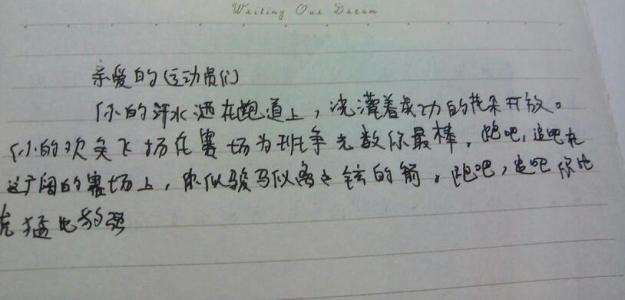 Writing Our Dream
亲爱的运动员们
你的汗水洒在跑道上，浇灌着成功的花朵开放。
你的欢笑飞扬在赛场为班争光数你最棒，跑吧，追吧在
这广阔的赛场上，你似骏马似离之铉的箭，跑吧，追吧你比
虎猛比豹强